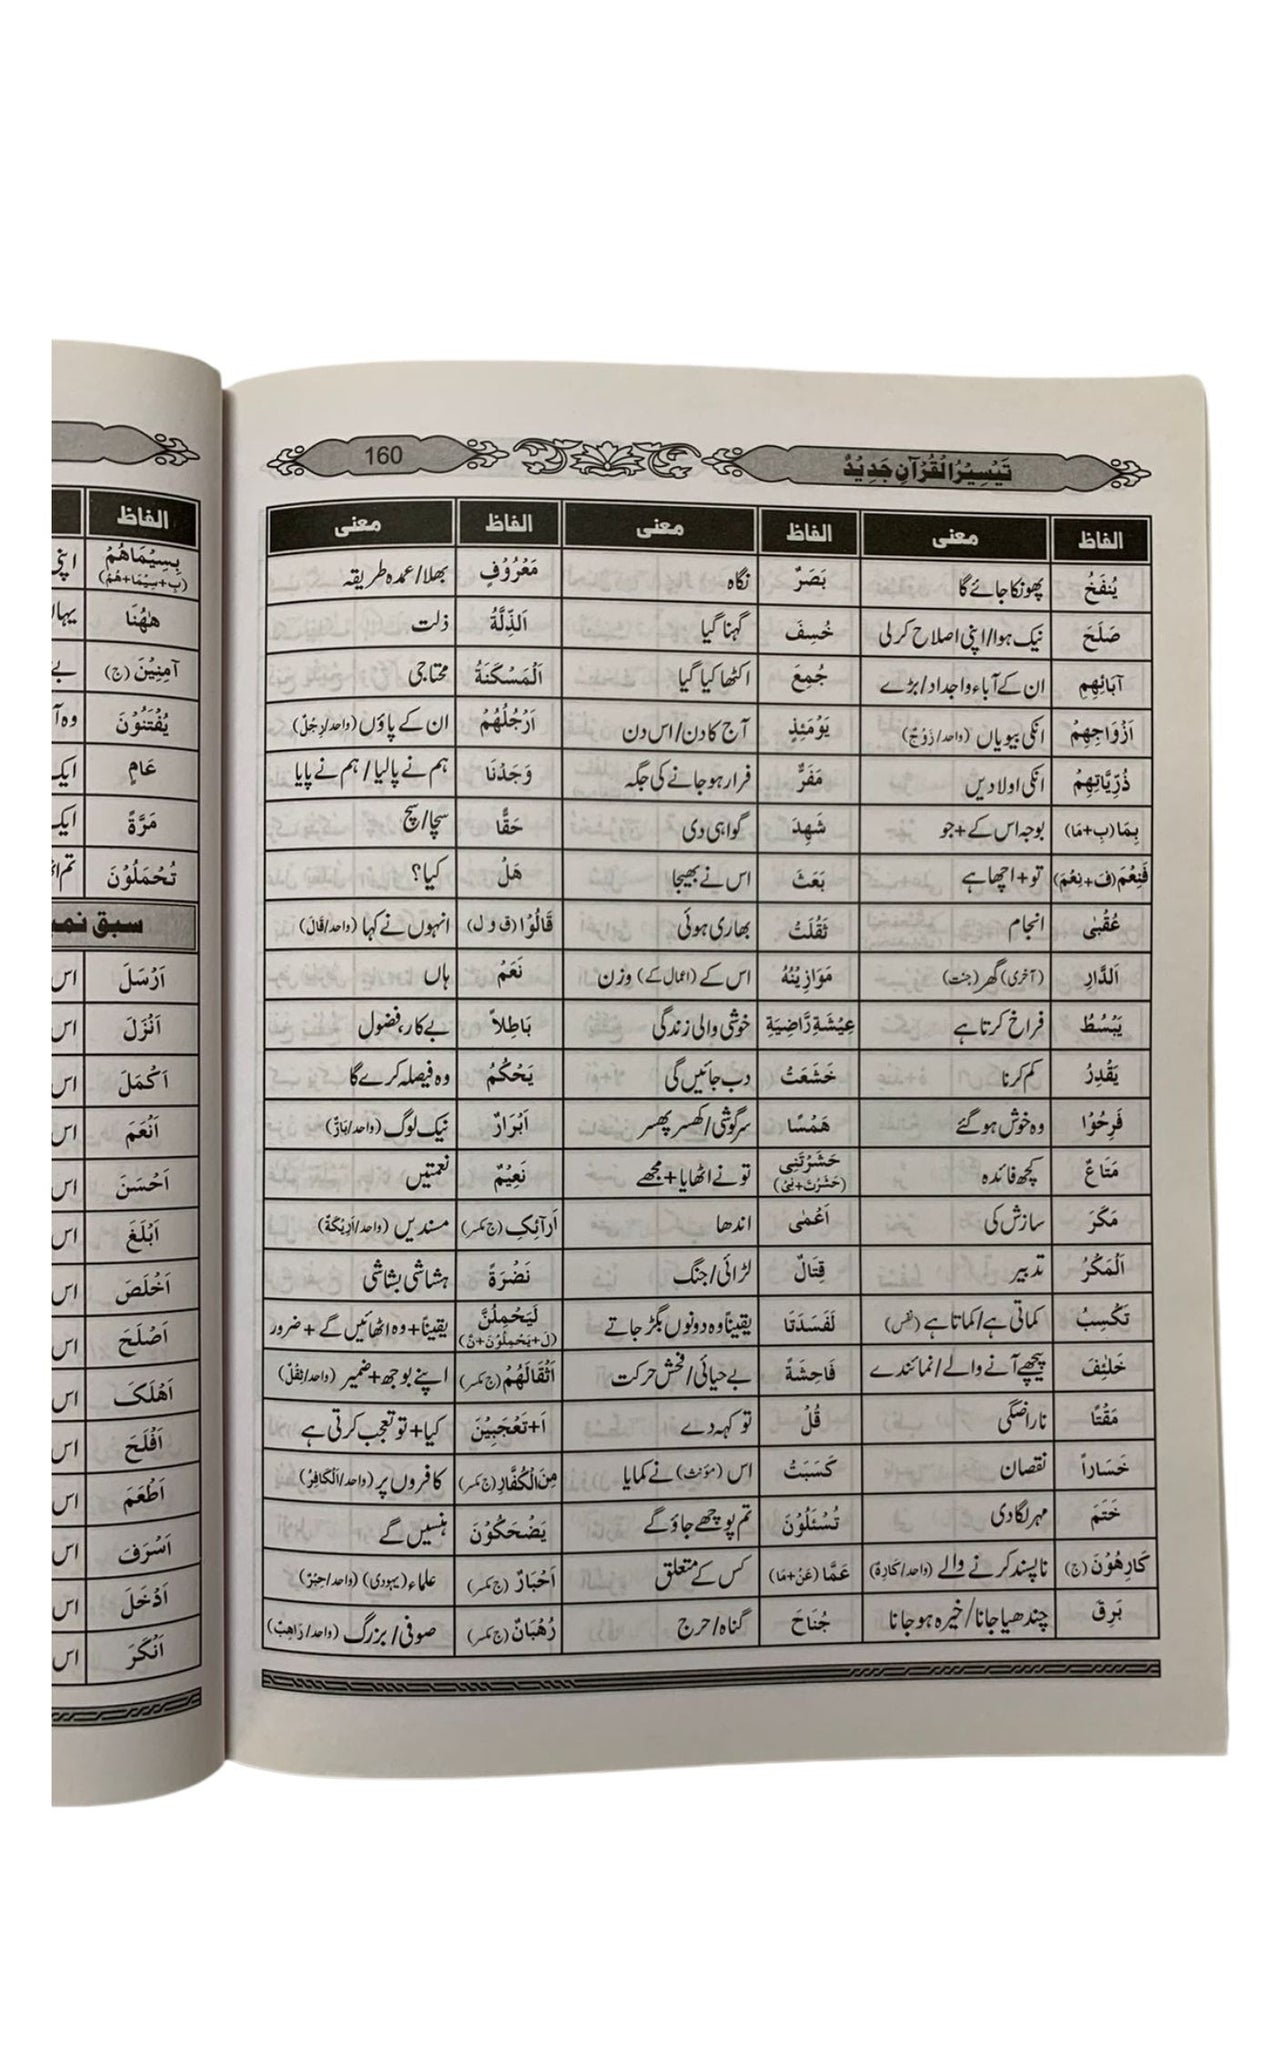 تَيْسِيْرُ الْقُرْآنِ جَدِيْدٌ 160
الفاظ معنی الفاظ معنی الفاظ معنی
يُنفَخُ پھونکا جائے گا بَصَرٌ نگاہ مَعْرُوْفٍ بھلا/عمدہ طریقہ
صَلَحَ نیک ہوا/اپنی اصلاح کرلی خُسِفَ گہنا گیا اَلذِّلَّةُ ذلت
آبَائِهِمِ ان کے آباء واجداد/بڑے جُمِعَ اکٹھا کیا گیا اَلْمَسْكَنَةُ محتاجی
اَزْوَاجِهِمْ انکی بیویاں (واحد/زَوْجٌ) يَوْمَئِذٍ آج کا دن/اس دن اَرْجُلُهُمْ ان کے پاؤں (واحد/رِجْلٌ)
ذُرِّيَّاتِهِمْ انکی اولادیں مَفَرٌّ فرار ہوجانے کی جگہ وَجَدْنَا ہم نے پالیا/ہم نے پایا
بِمَا (بِ+مَا) بوجہ اس کے+جو شَهِدَ گواہی دی حَقًّا سچا/سچ
فَنِعْمَ (فَ+نِعْمَ) تو+اچھا ہے بَعَثَ اس نے بھیجا هَلْ کیا؟
عُقْبٰى انجام ثَقُلَتْ بھاری ہوئی قَالُوْا (ق و ل) انہوں نے کہا (واحد/قَالَ)
اَلدَّارِ (آخری) گھر (جنت) مَوَازِيْنُهُ اس کے (اعمال کے) وزن نَعَمْ ہاں
يَبْسُطُ فراخ کرتا ہے عِيْشَةٍ رَّاضِيَةٍ خوشی والی زندگی بَاطِلاً بے کار، فضول
يَقْدِرُ کم کرنا خَشَعَتْ دب جائیں گی يَحْكُمُ وہ فیصلہ کرے گا
فَرِحُوْا وہ خوش ہوگئے هَمْسًا سرگوشی/کھسر پھسر اَبْرَارٌ نیک لوگ (واحد/بَارٌّ)
مَتَاعٌ کچھ فائدہ حَشَرْتَنِى (حَشَرْتَ+نِيْ) تونے اٹھایا+مجھے نَعِيْمٌ نعمتیں
مَكَرَ سازش کی اَعْمٰى اندھا اَرَآئِكِ (ج مکسر) مسندیں (واحد/اَرِيْكَةٌ)
اَلْمَكْرُ تدبیر قِتَالٌ لڑائی/جنگ نَضْرَةً ہشاشی بشاشی
تَكْسِبُ کماتی ہے/کماتا ہے (نفس) لَفَسَدَتَا یقیناً وہ دونوں بگڑ جاتے لَيَحْمِلُنَّ (لَ+يَحْمِلُوْنَ+نَّ) یقیناً+وہ اٹھائیں گے+ضرور
خَلٰئِفَ پیچھے آنے والے/نمائندے فَاحِشَةً بے حیائی/فحش حرکت اَثْقَالَهُمْ (ج مکسر) اپنے بوجھ+ضمیر (واحد/ثِقْلٌ)
مَقْتًا ناراضگی قُلْ تو کہہ دے اَ+تَعْجَبِيْنَ کیا+تو تعجب کرتی ہے
خَسَاراً نقصان كَسَبَتْ اس (مؤنث) نے کمایا مِنَ الْكُفَّارِ (ج مکسر) کافروں پر (واحد/اَلْكَافِرُ)
خَتَمَ مہر لگا دی تُسْئَلُوْنَ تم پوچھے جاؤ گے يَضْحَكُوْنَ ہنسیں گے
كَارِهُوْنَ (ج) ناپسند کرنے والے (واحد/كَارِهٌ) عَمَّا (عَنْ+مَا) کس کے متعلق اَحْبَارٌ (ج مکسر) علماء (یہودی) (واحد/حِبْرٌ)
بَرِقَ چندھیا جانا/خیرہ ہوجانا جُنَاحَ گناہ/حرج رُهْبَانٌ (ج مکسر) صوفی/بزرگ (واحد/رَاهِبٌ)
الفاظ
بِسِيْمَاهُمْ (بِ+سِيْمَا+هُمْ) اپنی
هٰهُنَا یہاں
آمِنِيْنَ (ج)
يُفْتَنُوْنَ
عَامٍ ایک
مَرَّةً ایک
تُحْمَلُوْنَ تم
سبق
اَرْسَلَ اس
اَنْزَلَ اس
اَكْمَلَ اس
اَنْعَمَ اس
اَحْسَنَ اس
اَبْلَغَ اس
اَخْلَصَ اس
اَصْلَحَ اس
اَهْلَكَ اس
اَفْلَحَ اس
اَطْعَمَ اس
اَسْرَفَ اس
اَدْخَلَ اس
اَنْكَرَ اس